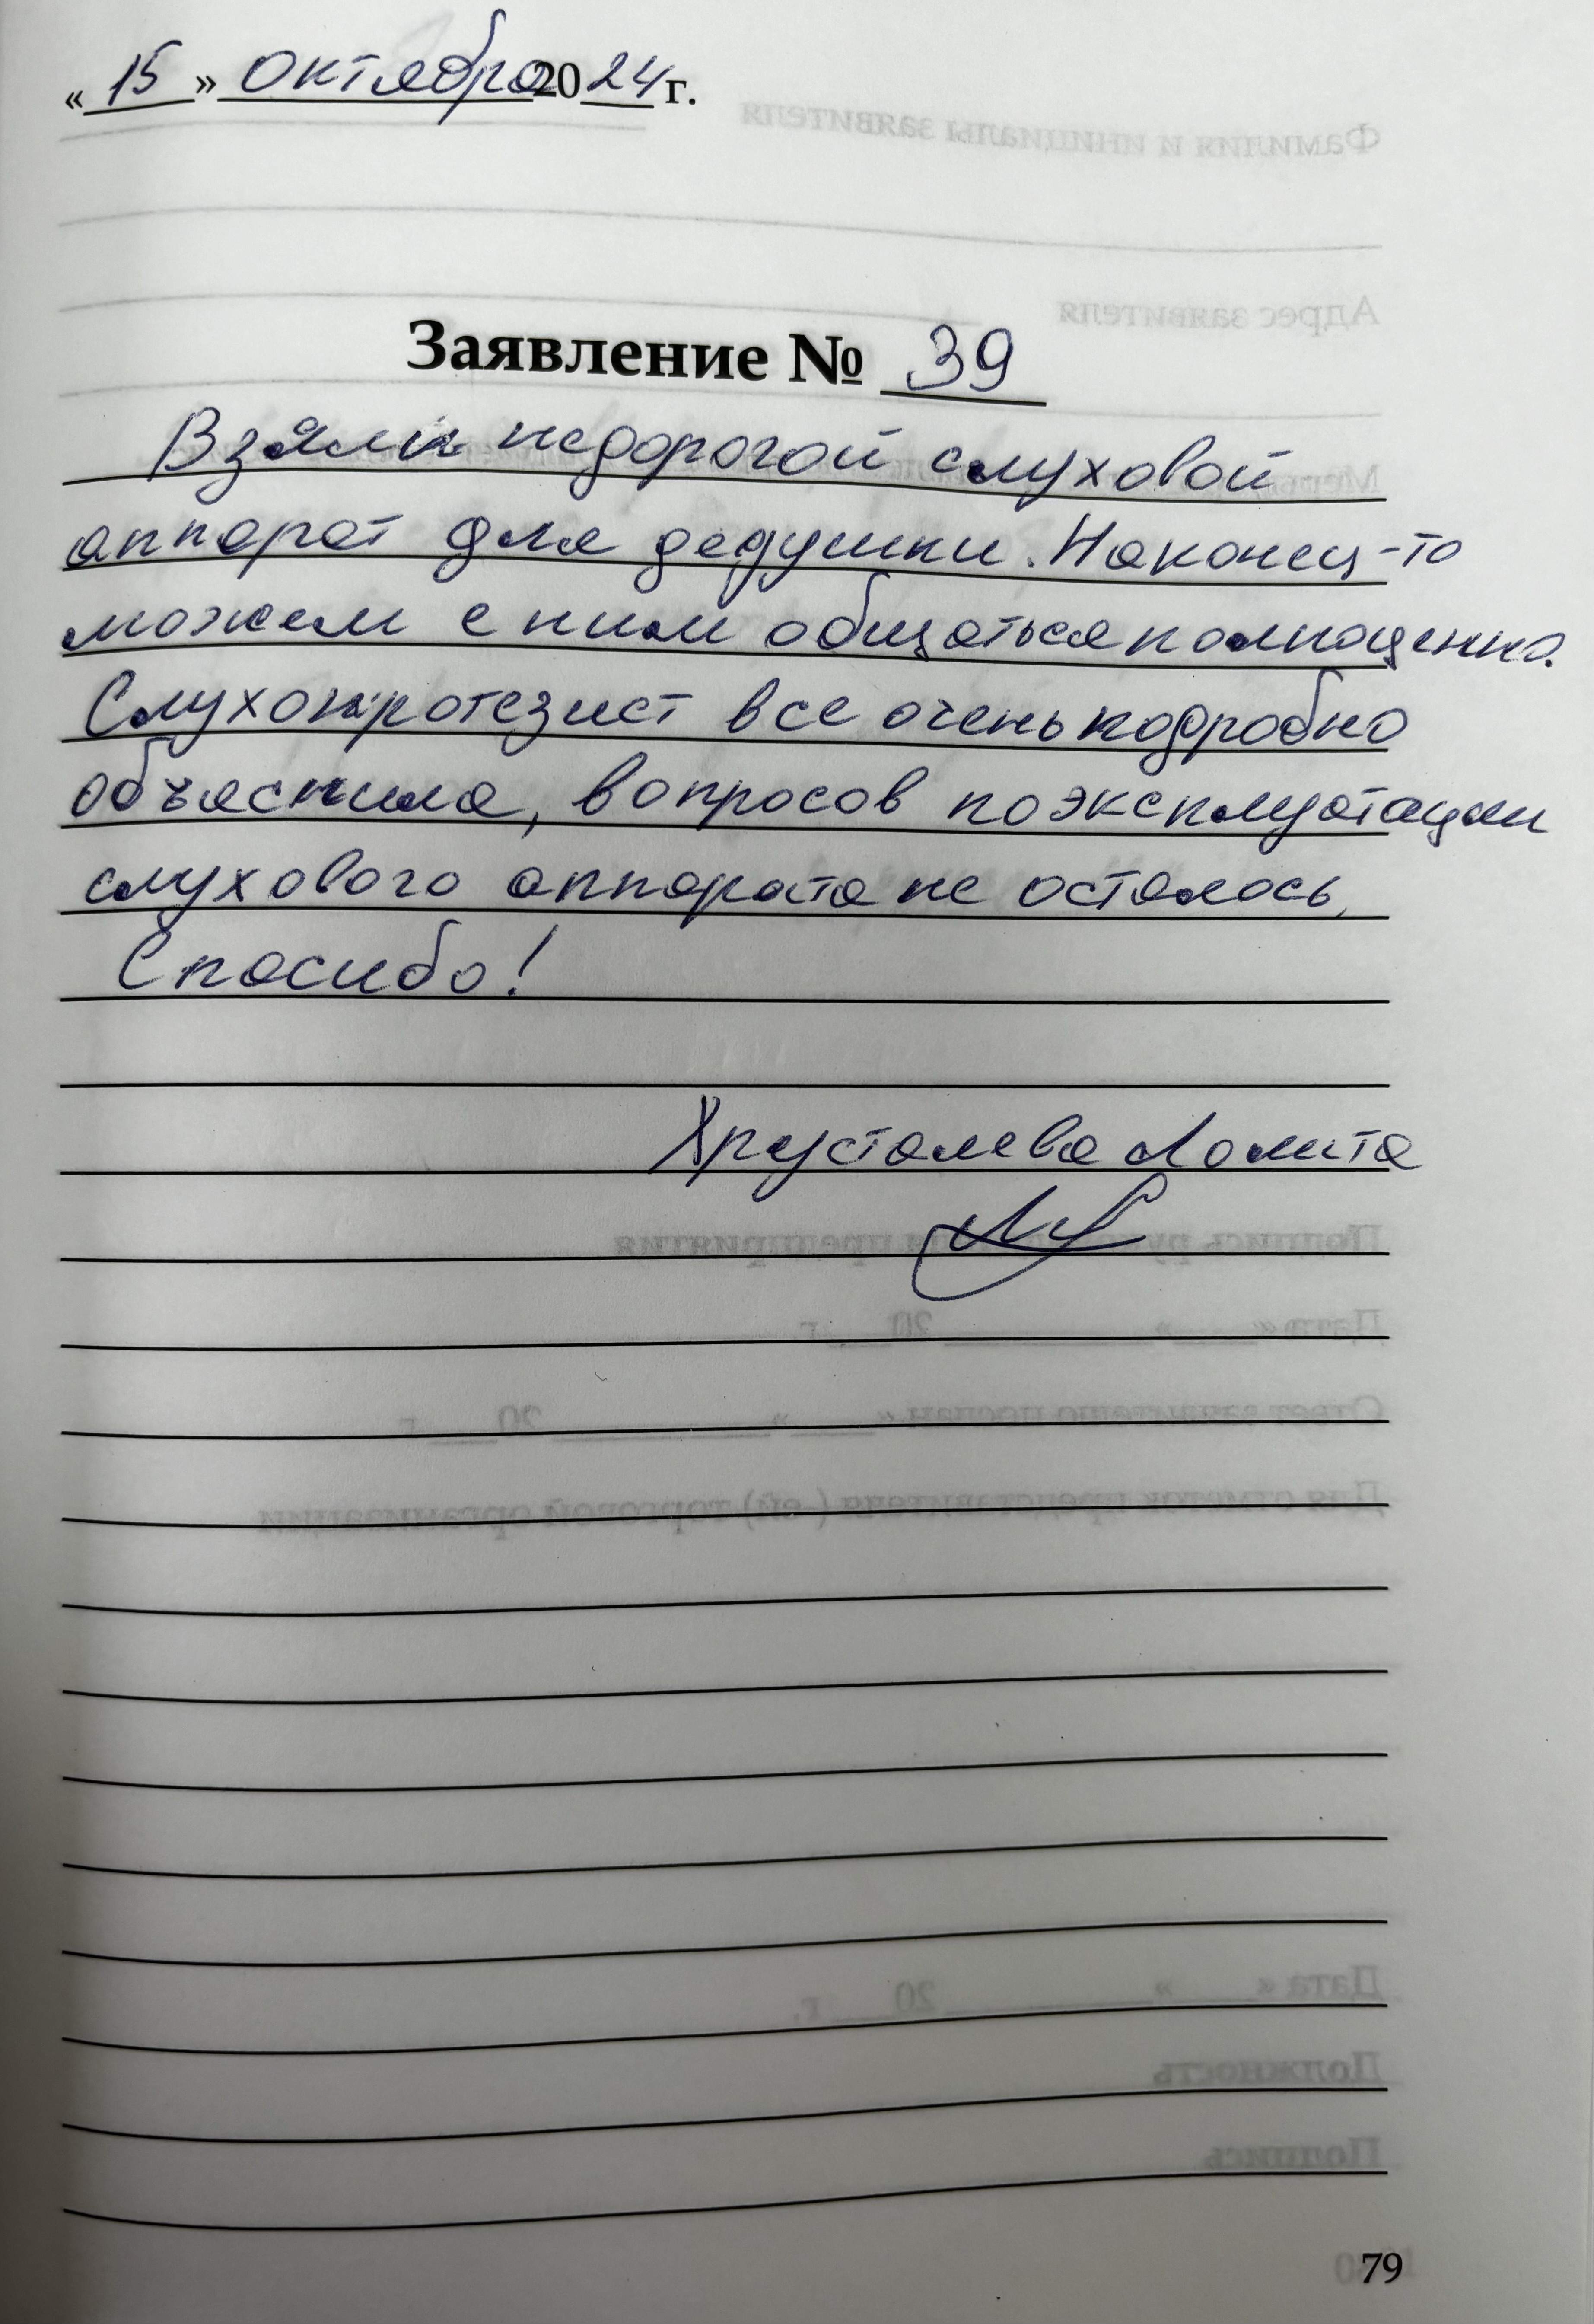 «15» октября 2024 г.
Заявление № 39
Взяли недорогой слуховой
аппарат для дедушки. Наконец-то
можем с ним общаться полноценно.
Слухопротезист все очень подробно
объяснила, вопросов по эксплуатации
слухового аппарата не осталось,
Спасибо!
Хрусталева Лолита
79